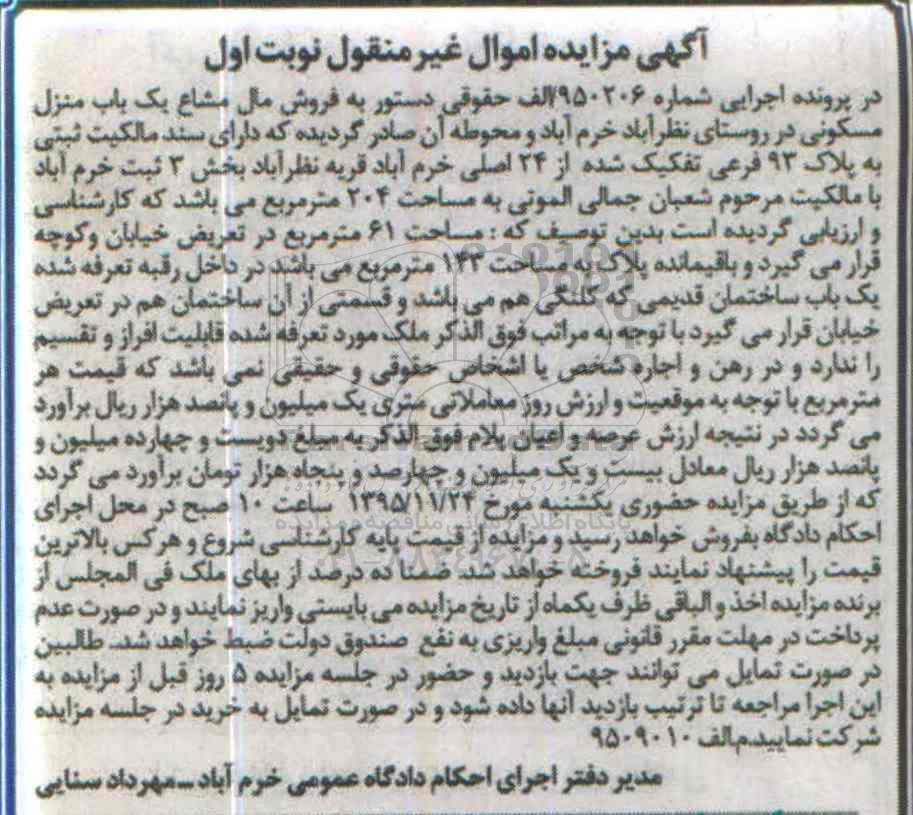 آگهی مزایده اموال غیر منقول نوبت اول
در پرونده اجرایی شماره ۹۵۰۲۰۶/الف حقوقی دستور به فروش مال مشاع یک باب منزل
مسکونی در روستای نظرآباد خرم آباد و محوطه آن صادر گردیده که دارای سند مالکیت ثبتی
به پلاک ۹۳ فرعی تفکیک شده از ۲۴ اصلی خرم آباد قریه نظرآباد بخش ۳ ثبت خرم آباد
با مالکیت مرحوم شعبان جمالی الموتی به مساحت ۲۰۴ مترمربع می باشد که کارشناسی
و ارزیابی گردیده است بدین توصیف که : مساحت ۶۱ مترمربع در تعریض خیابان وکوچه
قرار می گیرد و باقیمانده پلاک به مساحت ۱۴۳ مترمربع می باشد در داخل رقبه تعرفه شده
یک باب ساختمان قدیمی که کلنگی هم می باشد و قسمتی از آن ساختمان هم در تعریض
خیابان قرار می گیرد با توجه به مراتب فوق الذکر ملک مورد تعرفه شده قابلیت افراز و تقسیم
را ندارد و در رهن و اجاره شخص یا اشخاص حقوقی و حقیقی نمی باشد که قیمت هر
مترمربع با توجه به موقعیت و ارزش روز معاملاتی متری یک میلیون و پانصد هزار ریال برآورد
می گردد در نتیجه ارزش عرصه و اعیان پلام فوق الذکر به مبلغ دویست و چهارده میلیون و
پانصد هزار ریال معادل بیست و یک میلیون و چهارصد و پنجاه هزار تومان برآورد می گردد
که از طریق مزایده حضوری یکشنبه مورخ ۱۳۹۵/۱۱/۲۴ ساعت ۱۰ صبح در محل اجرای
احکام دادگاه بفروش خواهد رسید و مزایده از قیمت پایه کارشناسی شروع و هرکس بالاترین
قیمت را پیشنهاد نمایند فروخته خواهد شد. ضمنا ده درصد از بهای ملک فی المجلس از
برنده مزایده اخذ و الباقی ظرف یکماه از تاریخ مزایده می بایستی واریز نمایند و در صورت عدم
پرداخت در مهلت مقرر قانونی مبلغ واریزی به نفع صندوق دولت ضبط خواهد شد. طالبین
در صورت تمایل می توانند جهت بازدید و حضور در جلسه مزایده ۵ روز قبل از مزایده به
این اجرا مراجعه تا ترتیب بازدید آنها داده شود و در صورت تمایل به خرید در جلسه مزایده
شرکت نمایید.م.الف ۹۵۰۹۰۱۰
مدیر دفتر اجرای احکام دادگاه عمومی خرم آباد ـ مهرداد سنایی